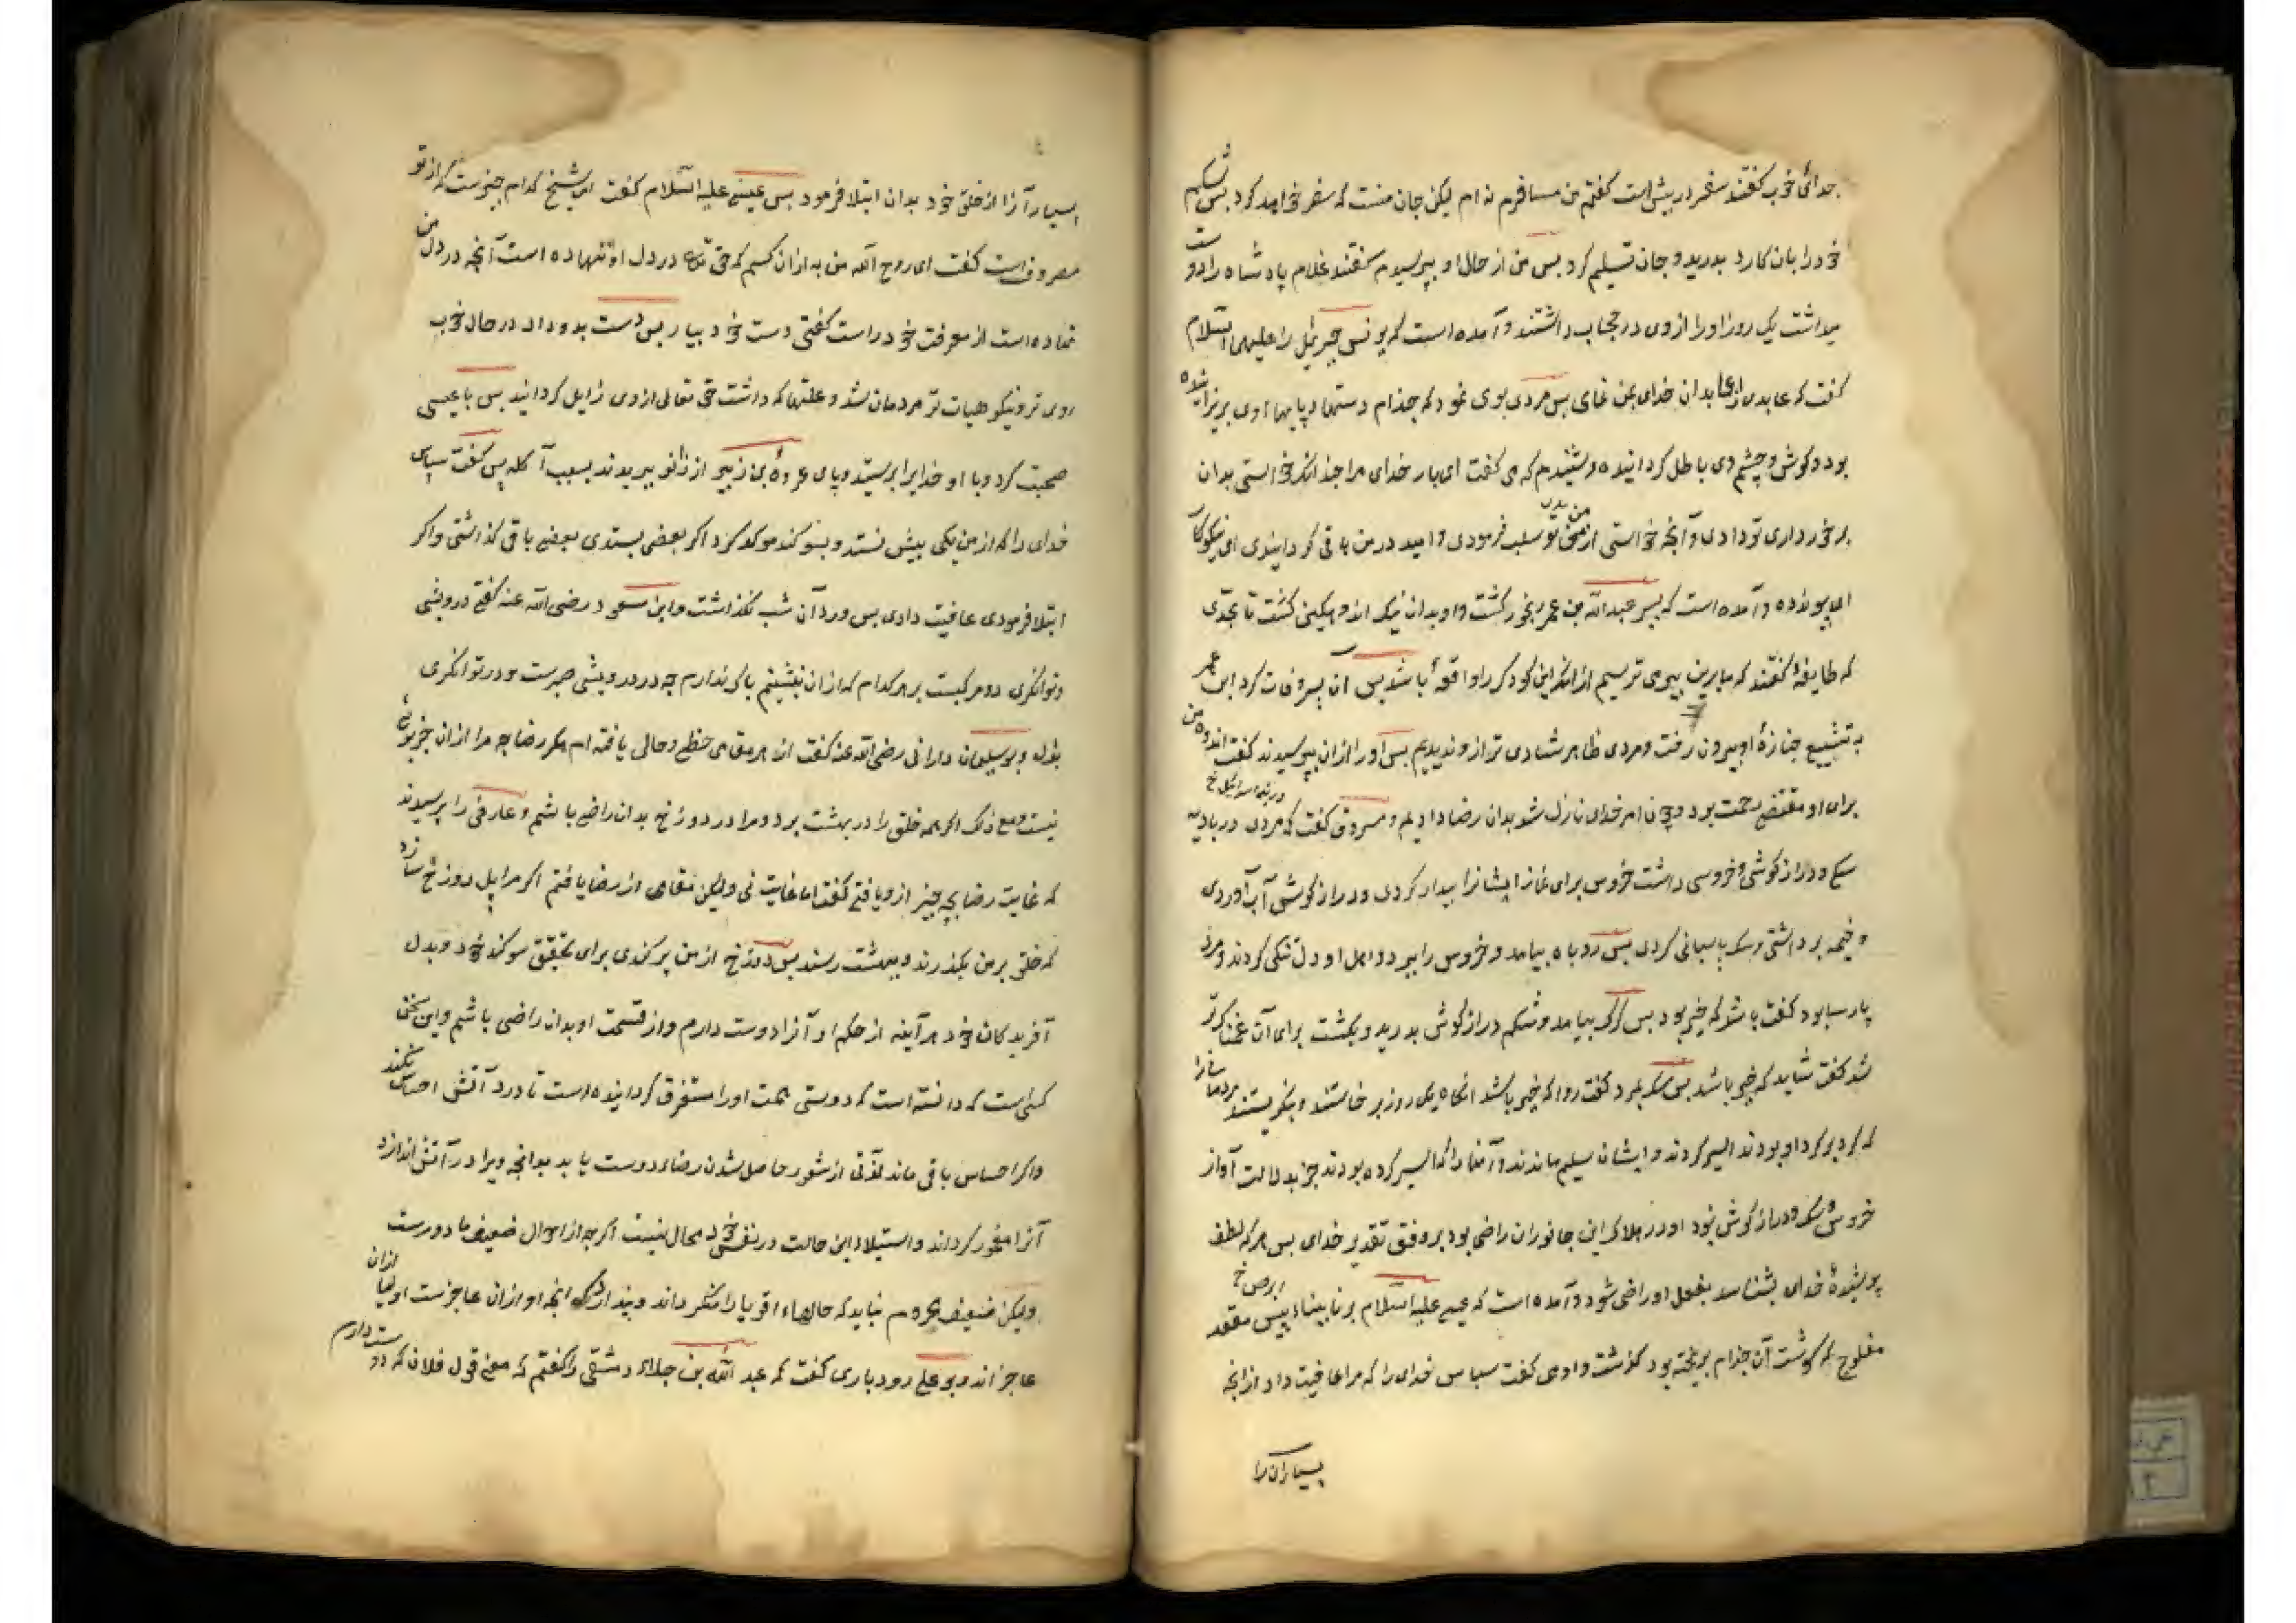 جدائی خوب کفتند سفر در پیش است کفتم من مسافرم نه ام لیکن جان منست که سفر خواهد کرد بس شکم
خود را بان کارد بدرید و جان تسلیم کرد بس من از حال او بپرسیدم کفتند غلام پادشاه را دوست
میداشت یک روز او را از وی در حجاب داشتند و آمده است که یونس جبرئیل را علیهما السلام
کفت که عابدترین عابدان خدای بمن نمای بس مردی بوی نمود که جذام دستها و پایهاء وی بریزانیده
بود و کوش و چشم وی باطل کردانیده و شنیدم که می کفت ای بار خدای مرا چندانکه خواستی بدان
برخورداری تو دادی و آنچه خواستی از من تو سلب فرمودی و امید در من باقی کردانیدی ای نیکوکار
ای پیونده و آمده است که پسر عبد الله بن عمر رنجور کشت و او بدان نیک اندوهکین کشت تا بحدی
که طایفهٔ کفتند که ما برین پیر می ترسیم از انک این کودک را واقعهٔ باشد بس آن پسر وفات کرد ابن عمر
به تشییع جنازهٔ او بیرون رفت و مردی ظاهر شادی تر از و ندیدیم بس او را از ان بپرسیدند کفت اندوه من
برای او مقتضی رحمت بود و چون امر خدای نازل شد بدان رضا دادیم و مسروق کفت که مردی در بادیه
در بنی اسرائیل خ
سک و دراز کوشی و خروسی داشت خروس برای نماز ایشانرا بیدار کردی و دراز کوش آب آوردی
و خیمه برداشتی و سک پاسبانی کردی بس روباه بیامد و خروس را ببرد و اهل او دل تنکی کردند و مرد
پارسا بود کفت باشد که خیر بود بس کرک بیامد و شکم دراز کوش بدرید و بکشت برای آن غمناک تر
شد کفت شاید که خیر باشد بس سک بمرد کفت روا که خیر باشد انکاه یک روز برخاستند و بنکریستند مردمانرا
که کرد بر کرد او بودند اسیر کردند و ایشان سلیم ماندند و آنها را که اسیر کرده بودند جز بدلالت آواز
خروس و سک و دراز کوش نبود او در هلاک این جانوران راضی بود بر وفق تقدیر خدای بس هر که لطف
پوشیدهٔ خدای بشناسد بفعل او راضی شود و آمده است که عیسی علیه السلام بر نابیناء پیس مقعد
ابرص خ
مفلوج که کوشت آن جذام بریخته بود کذشت و او می کفت سپاس خدای را که مرا عافیت داد از انچه
بسیاران را
بسیار آنرا از خلق خود بدان ابتلا فرمود بس عیسی علیه السلام کفت ای شیخ کدام چیزست که از تو
مصروف است کفت ای روح الله من به از ان کسم که حق تعالی در دل او ننهاده است آنچه در دل من
نهاده است از معرفت خود راست کفتی دست خود بیار بس دست بدو داد در حال خوب
روی تر و نیکو هیات تر مردمان شد و علتها که داشت حق تعالی از وی زایل کردانید بس با عیسی
صحبت کرد و با او خدایرا پرستید و پای عروة بن زبیر از زانو ببریدند بسبب آکله بس کفت سپاس
خدای را که از من یکی بیش نستد و بسوکند موکد کرد اکر بعضی بستدی بعضی باقی کذاشتی و اکر
ابتلا فرمودی عافیت دادی بس ورد آن شب نکذاشت و ابن مسعود رضی الله عنه کفتی درویشی
و توانکری دو مرکبست بر هر کدام که از ان نشینم باک ندارم چه در درویشی صبرست و در توانکری
بذل و بوسلیمان دارانی رضی الله عنه کفت از هر مقامی حظی و حالی یافته ام مکر رضا چه مرا از ان جز بویی
نیست و مع ذلک اکر همه خلق را در بهشت برد و مرا در دوزخ بدان راضی باشم و عارفی را پرسیدند
که غایت رضا بچه چیز از و یافتی کفت اما غایت نی ولیکن مقامی از رضا یافتم اکر مرا پل دوزخ سازد
که خلق بر من بکذرند و ببهشت رسند بس دوزخ از من پر کندی برای تحقق سوکند خود و بدل
آفریدکان خود هر آینه از حکم او آنرا دوست دارم و از قسمت او بدان راضی باشم و این سخن
کسی است که دانسته است که دوستی همت او را مستغرق کردانیده است تا درد آتش احساس نکند
و اکر احساس باقی ماند لذتی از شعور حاصل شدن رضاء دوست یابد بدانچه ویرا در آتش اندازد
آنرا مغمور کرداند و استیلاء این حالت در نفس خود محال نیست اکرچه از احوال ضعیف ما دورست
ولیکن ضعیف محروم نباید که حالهاء اقویا را منکر داند و پندارد که انچه او از ان عاجزست اولیا از ان
عاجز اند و بوعلی رودباری کفت که عبد الله بن جلاء دمشقی را کفتم که معنی قول فلان که دوست دارم